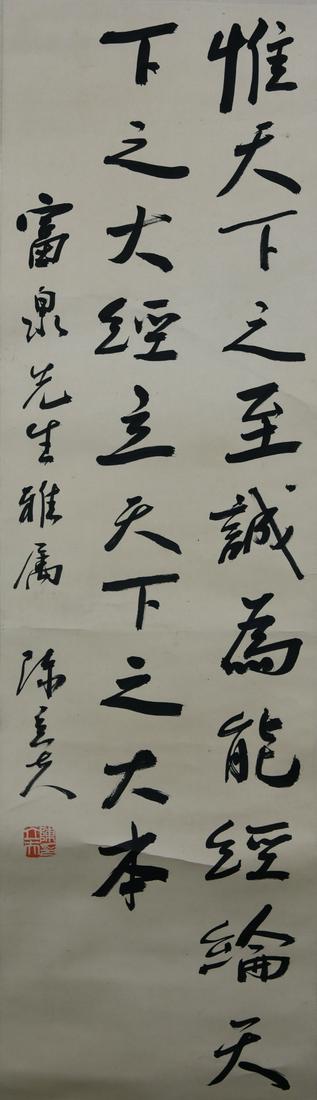 惟天下之至誠為能經綸天
下之大經立天下之大本
富泉先生雅属 陳立夫